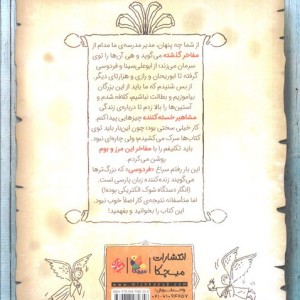 از شما چه پنهان، مدیر مدرسه‌ی ما مدام از
مفاخر گذشته می‌گوید و هی آن‌ها را توی
سرمان می‌زند؛ از ابوعلی‌سینا و فردوسی
گرفته تا ابوریحان و رازی و هزارتای دیگر.
از بس شنیدم که ما باید از این بزرگان
بیاموزیم و بطالت نباشیم، کلافه شدم و
آستین‌ها را بالا زدم تا درباره‌ی زندگی
مشاهیر خسته‌کننده چیزهایی پیدا کنم.
کار خیلی سختی بود؛ چون این‌بار باید توی
کتاب‌ها سرک می‌کشیدم؛ ولی چاره‌ای نبود.
باید تکلیفم را با مفاخر این مرز و بوم
روشن می‌کردم.
این بار رفتم سراغ «فردوسی» که بزرگ‌ترها
می‌گویند زنده‌کننده زبان پارسی است.
(انگار دستگاه شوک الکتریکی بوده!)
اما متأسفانه نتیجه‌ی کار اصلاً خوب نبود.
این کتاب را بخوانید و بفهمید!
انتشارات
میچکا